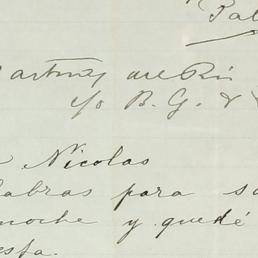 Pal
artinez del Rio
c/o B. G. &
Nicolas
labras para sa
noche y quedé
esta.